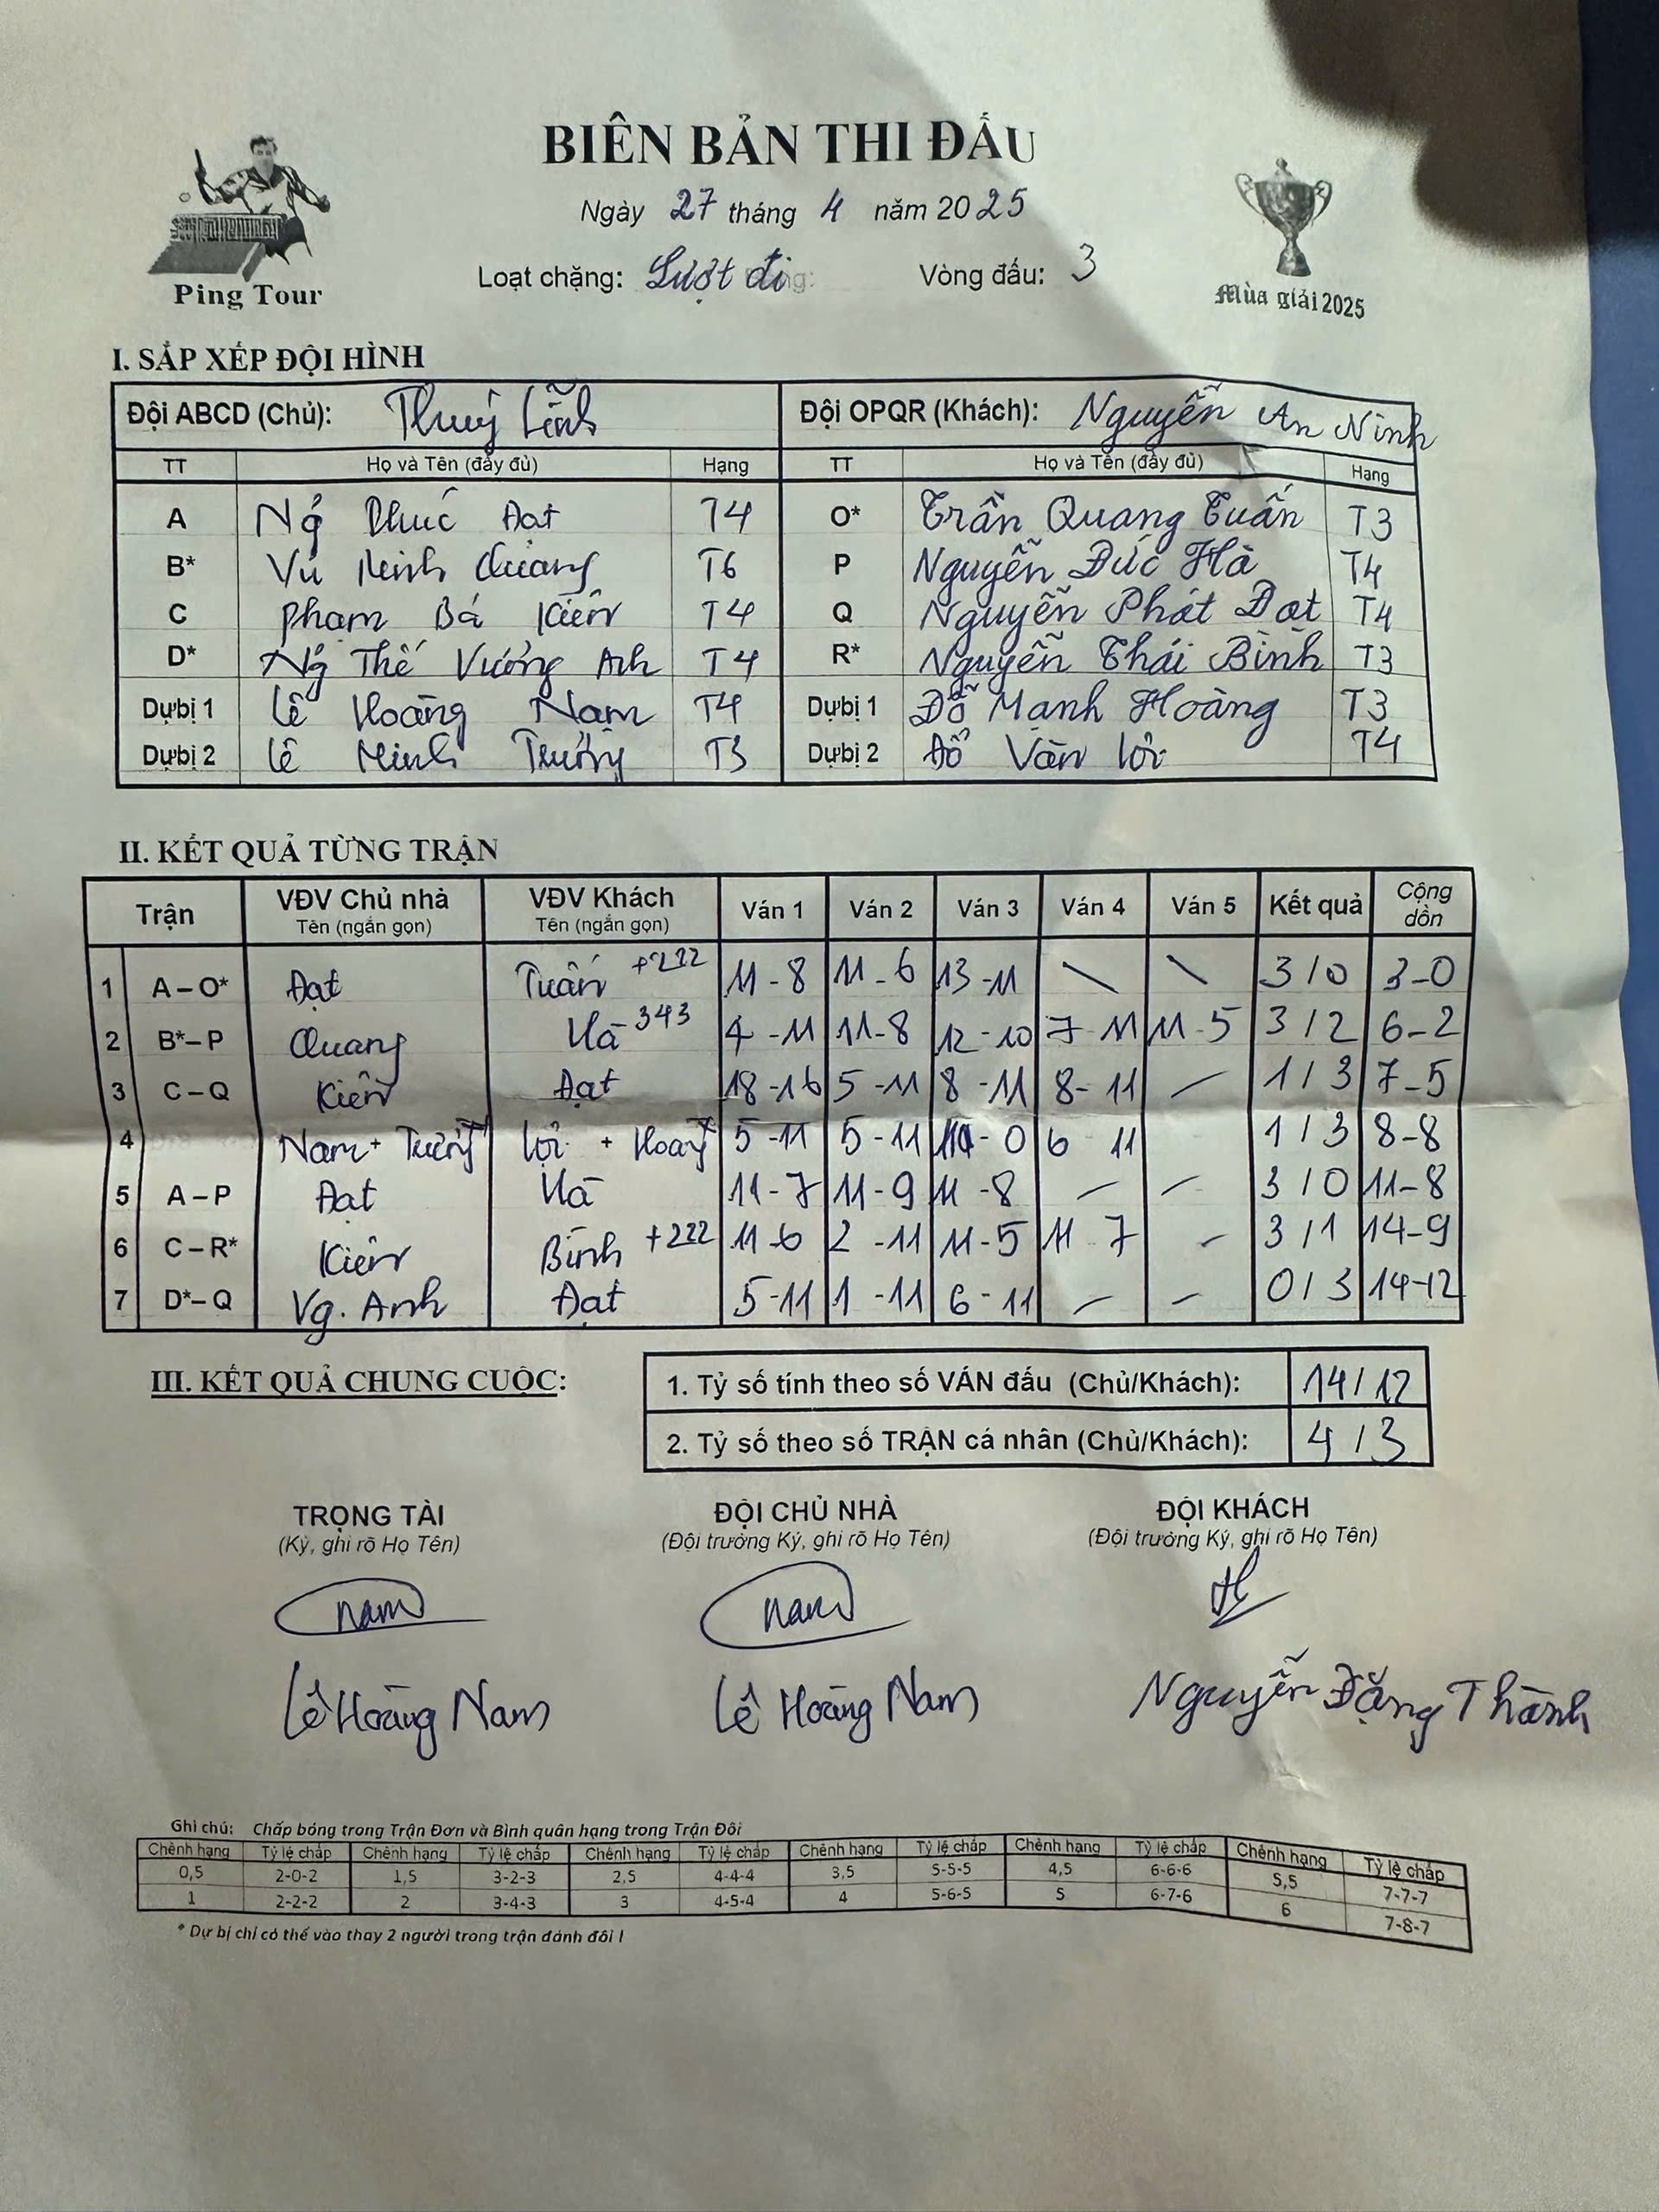 BIÊN BẢN THI ĐẤU
Ngày 27 tháng 4 năm 2025
Loạt chặng: Lượt đi Vòng đấu: 3
Ping Tour
Mùa giải 2025
I. SẮP XẾP ĐỘI HÌNH
Đội ABCD (Chủ): Thuý Lĩnh Đội OPQR (Khách): Nguyễn An Ninh
TT Họ và Tên (đầy đủ) Hạng TT Họ và Tên (đầy đủ) Hạng
A Ng̃ Phúc Đạt T4 O* Trần Quang Tuấn T3
B* Vũ Minh Quang T6 P Nguyễn Đức Hà T4
C Phạm Bá Kiên T4 Q Nguyễn Phát Đạt T4
D* Ng̃ Thế Vương Anh T4 R* Nguyễn Thái Bình T3
Dự bị 1 Lê Hoàng Nam T4 Dự bị 1 Đỗ Mạnh Hoàng T3
Dự bị 2 Lê Minh Trường T3 Dự bị 2 Đỗ Văn Lợi T4
II. KẾT QUẢ TỪNG TRẬN
Trận VĐV Chủ nhà Tên (ngắn gọn) VĐV Khách Tên (ngắn gọn) Ván 1 Ván 2 Ván 3 Ván 4 Ván 5 Kết quả Cộng dồn
1 A – O* Đạt Tuấn +222 11 - 8 11 - 6 13 - 11 3 / 0 3 - 0
2 B* – P Quang Hà 343 4 - 11 11 - 8 12 - 10 7 - 11 11 - 5 3 / 2 6 - 2
3 C – Q Kiên Đạt 18 - 16 5 - 11 8 - 11 8 - 11 1 / 3 7 - 5
4 Nam + Trường Lợi + Hoàng 5 - 11 5 - 11 - 0 6 11 1 / 3 8 - 8
5 A – P Đạt Hà 11 - 7 11 - 9 11 - 8 3 / 0 11 - 8
6 C – R* Kiên Bình +222 11 - 6 2 - 11 11 - 5 11 7 3 / 1 14 - 9
7 D* – Q Vg. Anh Đạt 5 - 11 1 - 11 6 - 11 0 / 3 14 - 12
III. KẾT QUẢ CHUNG CUỘC:
1. Tỷ số tính theo số VÁN đấu (Chủ/Khách): 14 / 12
2. Tỷ số theo số TRẬN cá nhân (Chủ/Khách): 4 / 3
TRỌNG TÀI ĐỘI CHỦ NHÀ ĐỘI KHÁCH
(Ký, ghi rõ Họ Tên) (Đội trưởng Ký, ghi rõ Họ Tên) (Đội trưởng Ký, ghi rõ Họ Tên)
Nam Nam
Lê Hoàng Nam Lê Hoàng Nam Nguyễn Đặng Thành
Ghi chú: Chấp bóng trong Trận Đơn và Bình quân hạng trong Trận Đôi
Chênh hạng Tỷ lệ chấp Chênh hạng Tỷ lệ chấp Chênh hạng Tỷ lệ chấp Chênh hạng Tỷ lệ chấp Chênh hạng Tỷ lệ chấp Chênh hạng Tỷ lệ chấp
0,5 2-0-2 1,5 3-2-3 2,5 4-4-4 3,5 5-5-5 4,5 6-6-6 5,5 7-7-7
1 2-2-2 2 3-4-3 3 4-5-4 4 5-6-5 5 6-7-6 6 7-8-7
* Dự bị chỉ có thể vào thay 2 người trong trận đánh đôi !